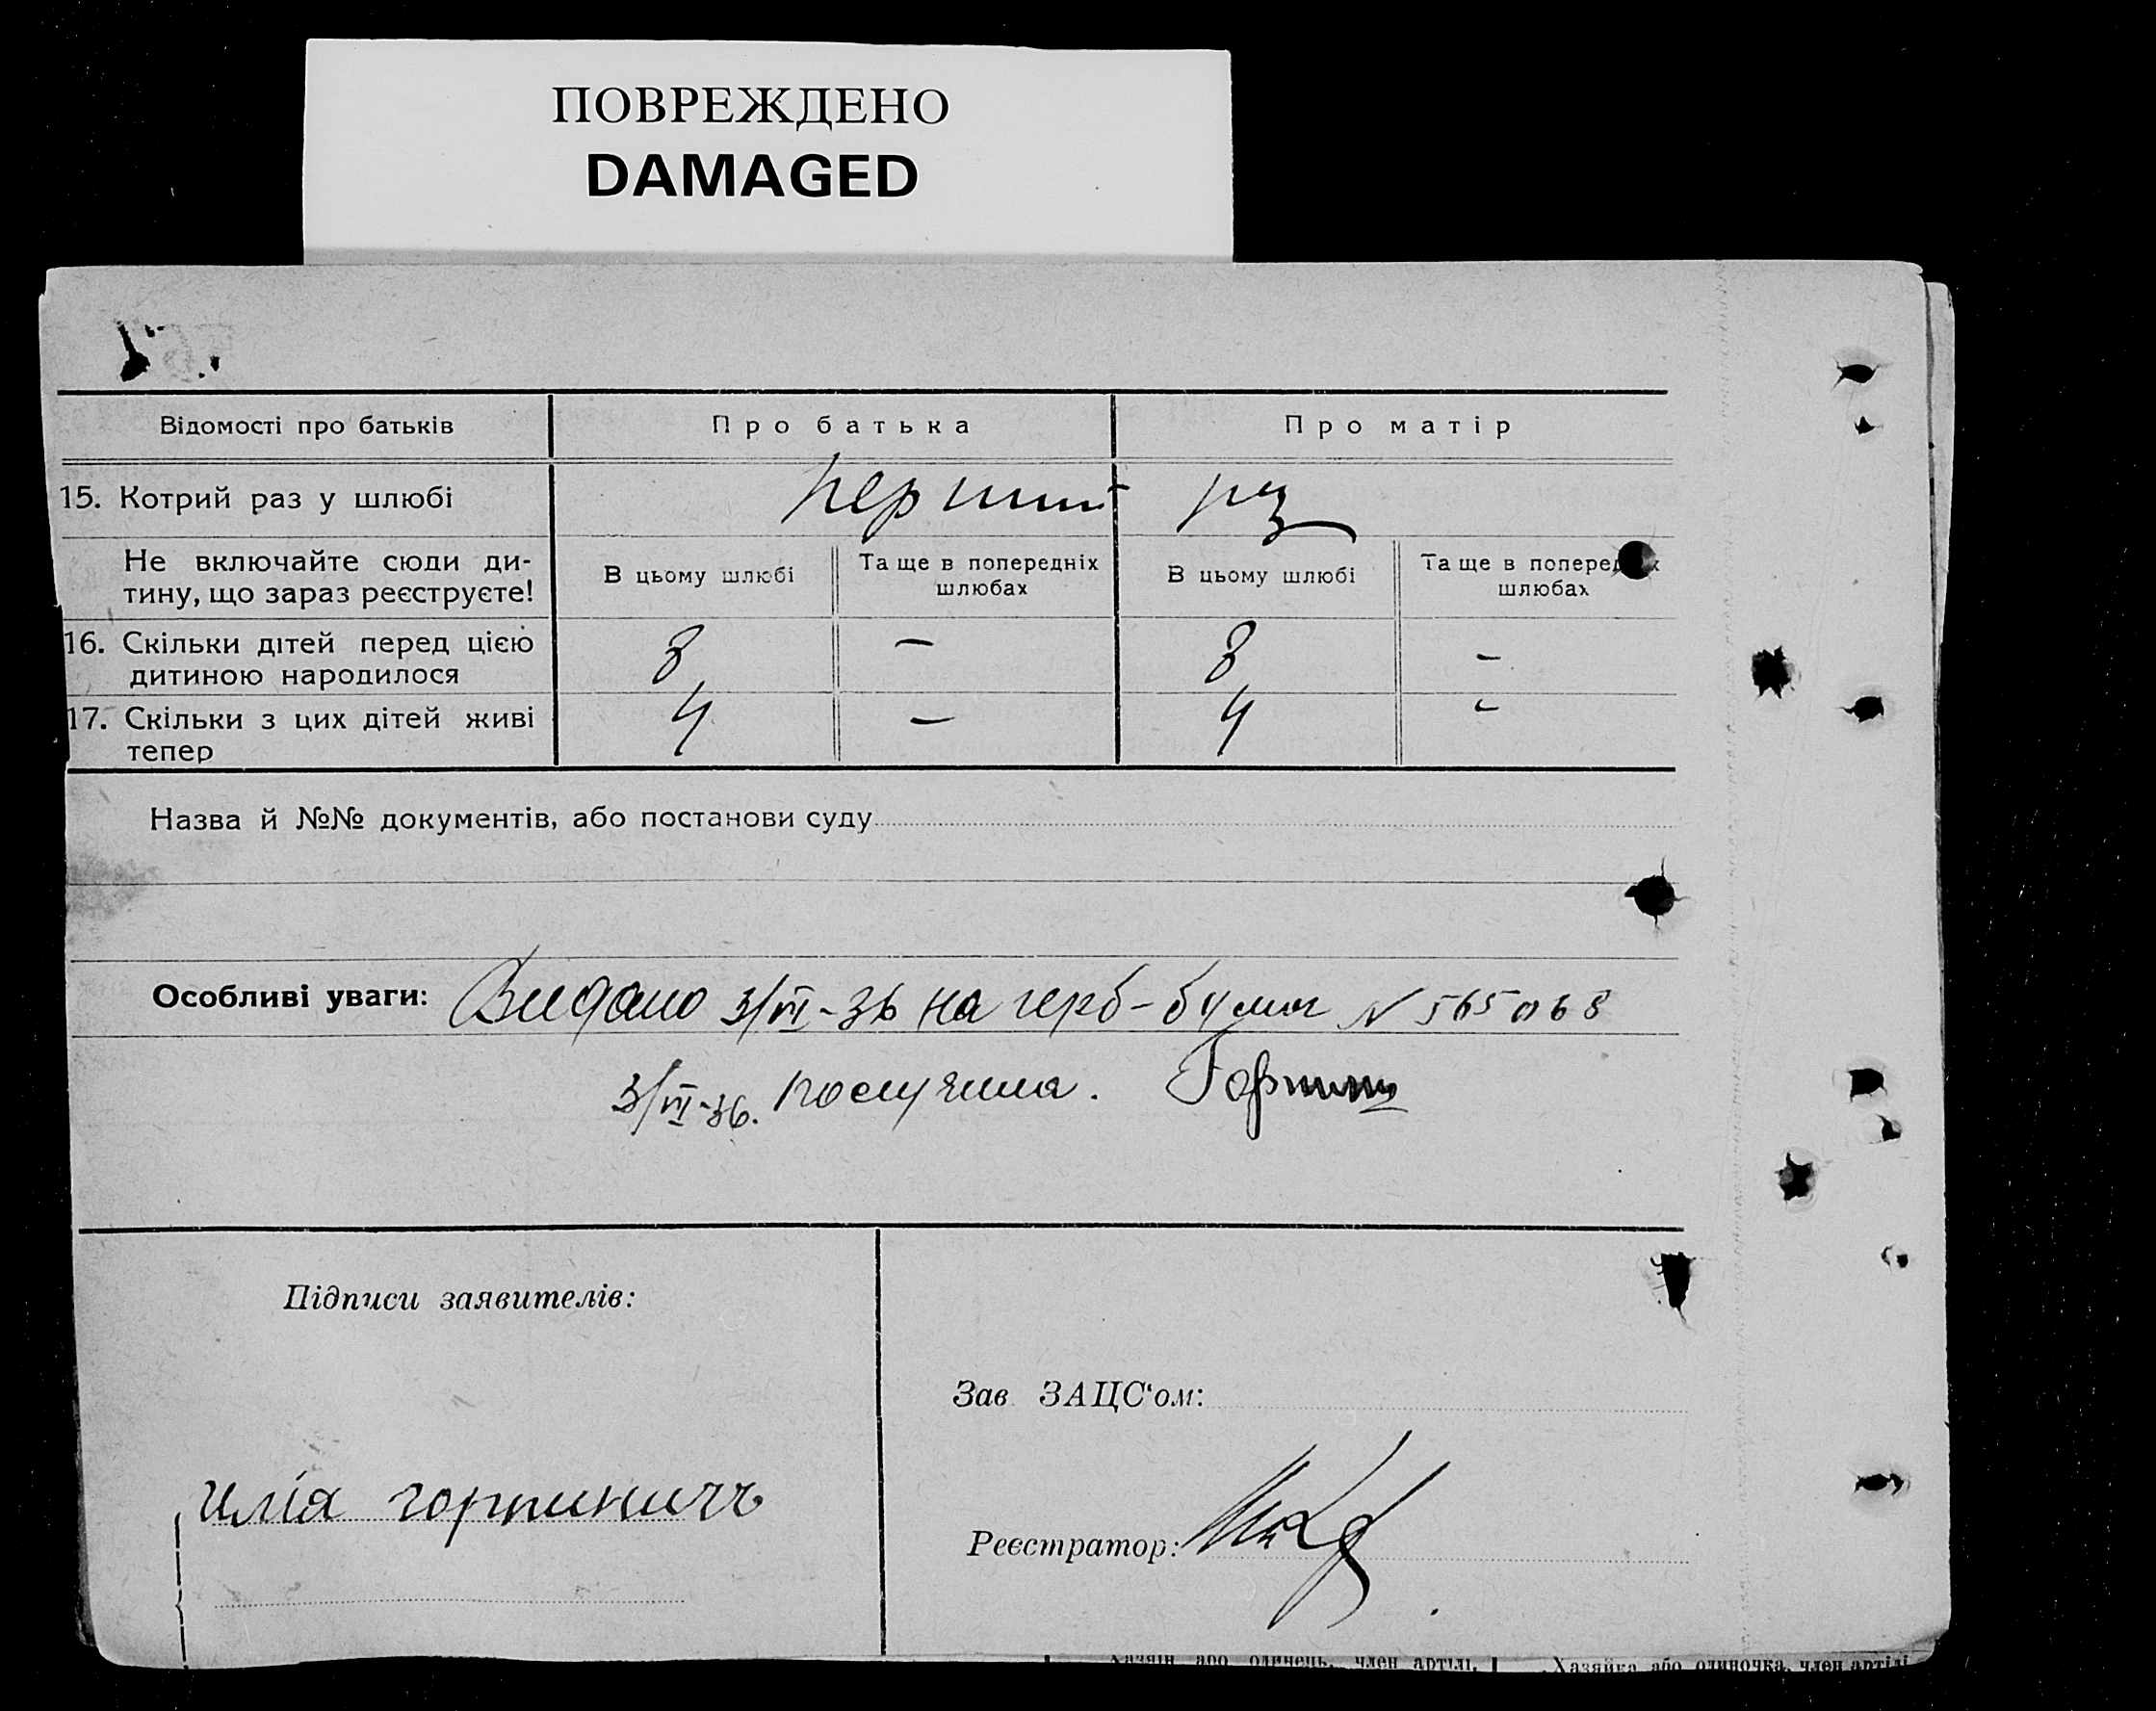 ПОВРЕЖДЕНО
DAMAGED
Відомості про батьків
Про батька
Про матір
15. Котрий раз у шлюбі
перший раз
Не включайте сюди ди-
тину, що зараз реєструєте!
В цьому шлюбі
Та ще в попередніх
шлюбах
В цьому шлюбі
Та ще в поперед х
шлюбах
16. Скільки дітей перед цією
дитиною народилося
8 — 8 —
17. Скільки з цих дітей живі
тепер
4 — 4 -
Назва й №№ документів, або постанови суду
Особливі уваги: Видано 3/VI-36 на герб-бумаг N 565068
3/VI-36. получила.
Підписи заявителів:
Зав. ЗАЦС‘ом:
илія
Реєстратор:
Хазяїн або одинець, член артілі,
Хазяйка або одиночка, член артілі